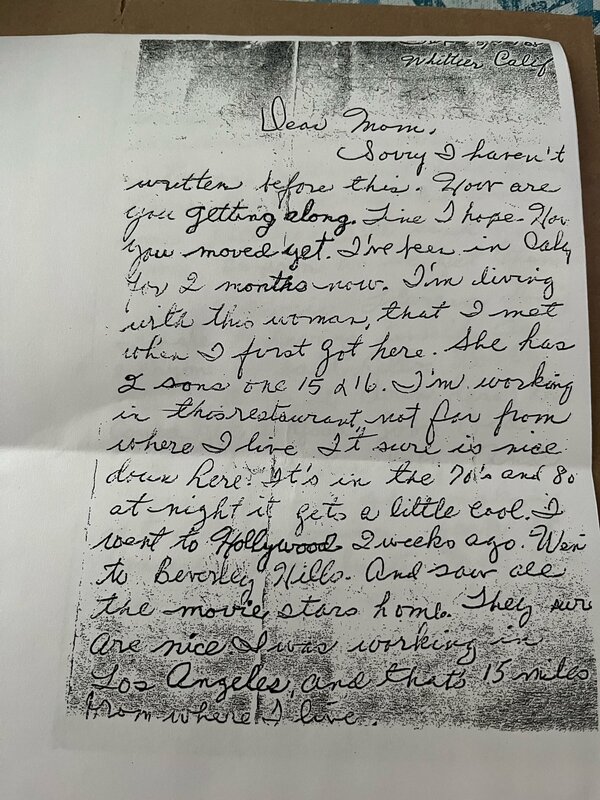 Whittier Calif
Dear Mom,
Sorry I haven't
written before this. How are
you getting along. Fine I hope. Hav
you moved yet. I've been in Calif
for 2 months now. I'm living
with this woman, that I met
when I first got here. She has
2 sons one 15 & 16. I'm working
in this restaurant, not far from
where I live. It sure is nice
down here. It's in the 70's and 80
at night it gets a little cool. I
went to Hollywood 2 weeks ago. Wen
to Beverly Hills. And saw all
the movie stars home. They sure
are nice I was working in
Los Angeles, and that's 15 miles
from where I live.